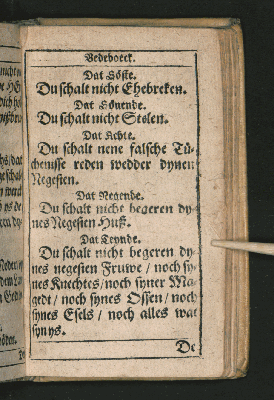 Bedeboeck.
Dat Söste.
Du schalt nicht Ehebreken.
Dat Söuende.
Du schalt nicht Stelen.
Dat Achte.
Du schalt nene falsche Tü-
chenisse reden wedder dynen
Negesten.
Dat Negende.
Du schalt nicht begeren dy-
nes Negesten Huß.
Dat Teynde.
Du schalt nicht begeren dy-
nes negesten Fruwe / noch sy-
nes Knechtes / noch syner Ma-
gedt / noch synes Ossen / noch
synes Esels / noch alles wat
syn ys.
De